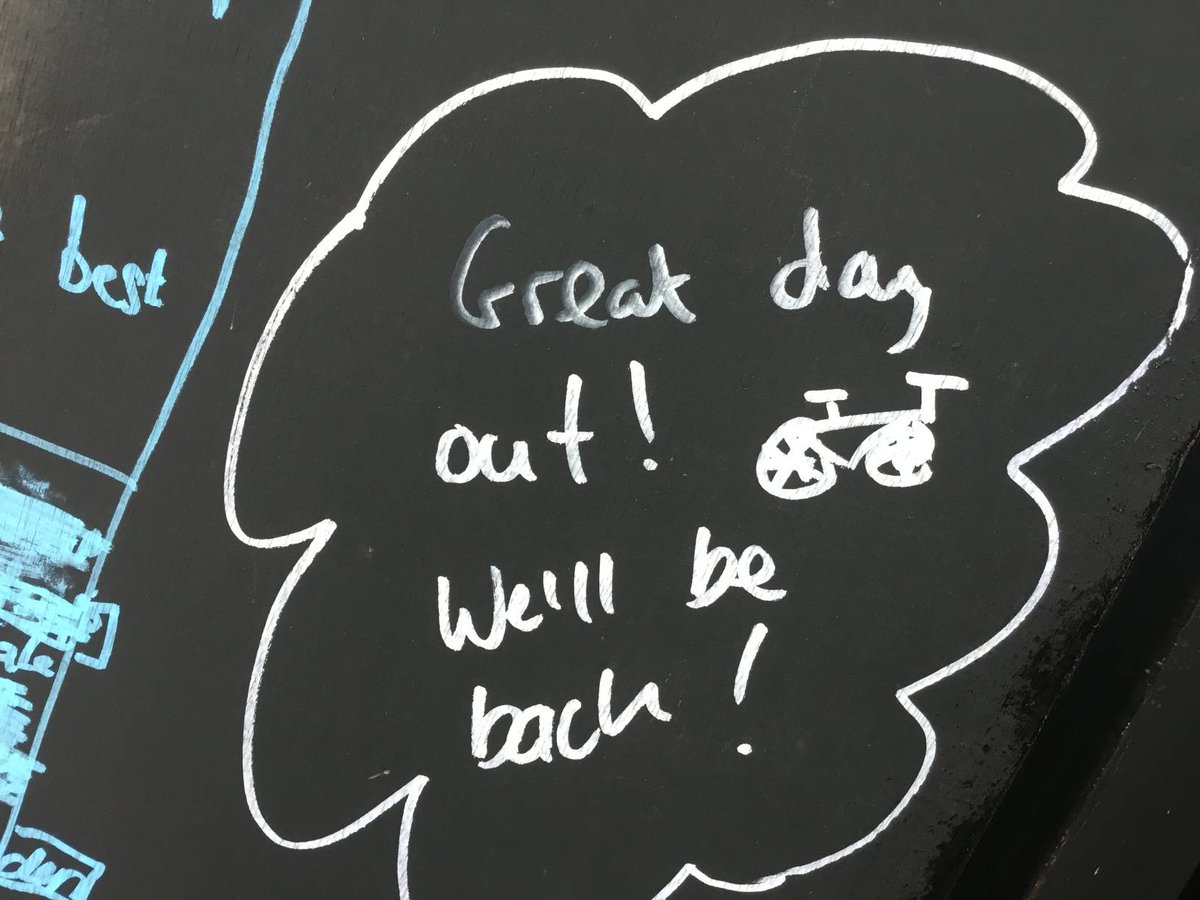 best
Great day
out!
We'll be
back!